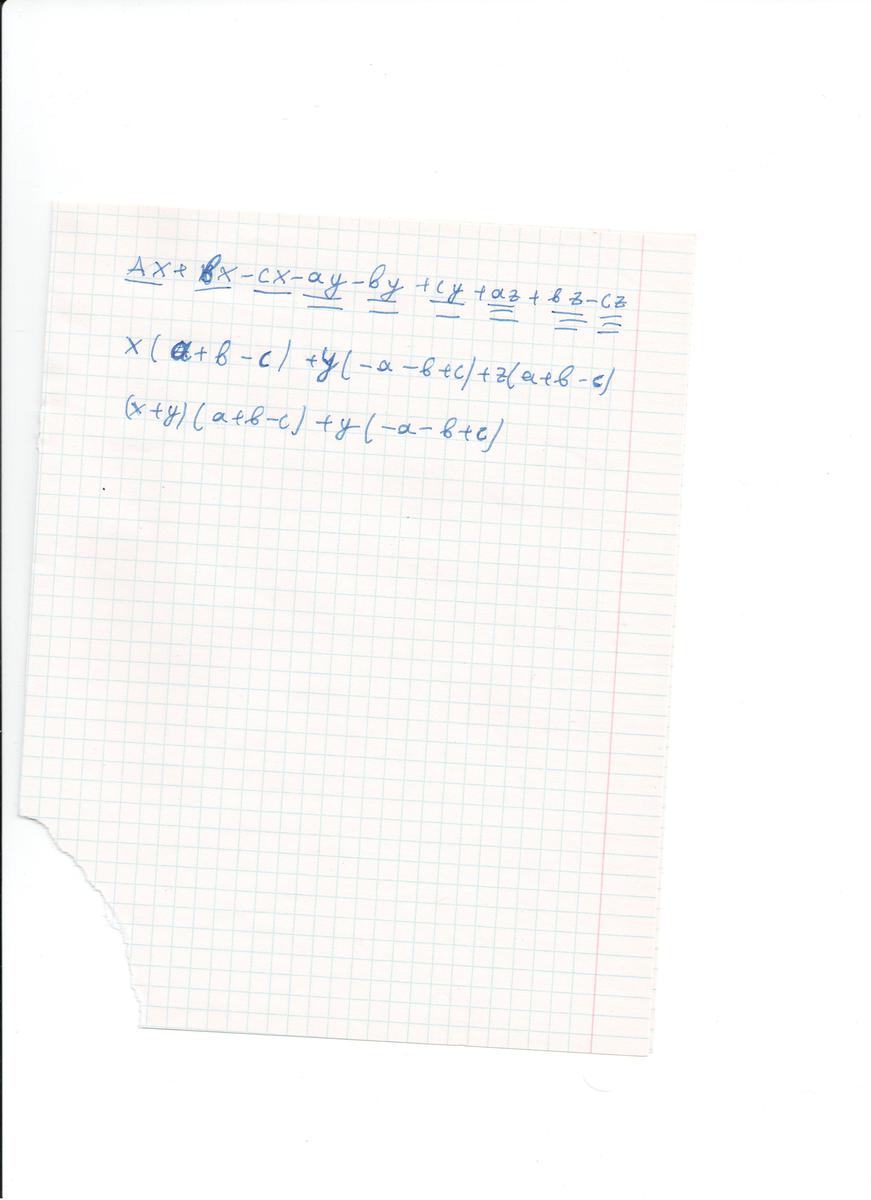 Ax + bx - cx - ay - by + cy + az + bz - cz
x(a+b-c) + y(-a-b+c) + z(a+b-c)
(x+y)(a+b-c) + y(-a-b+c)